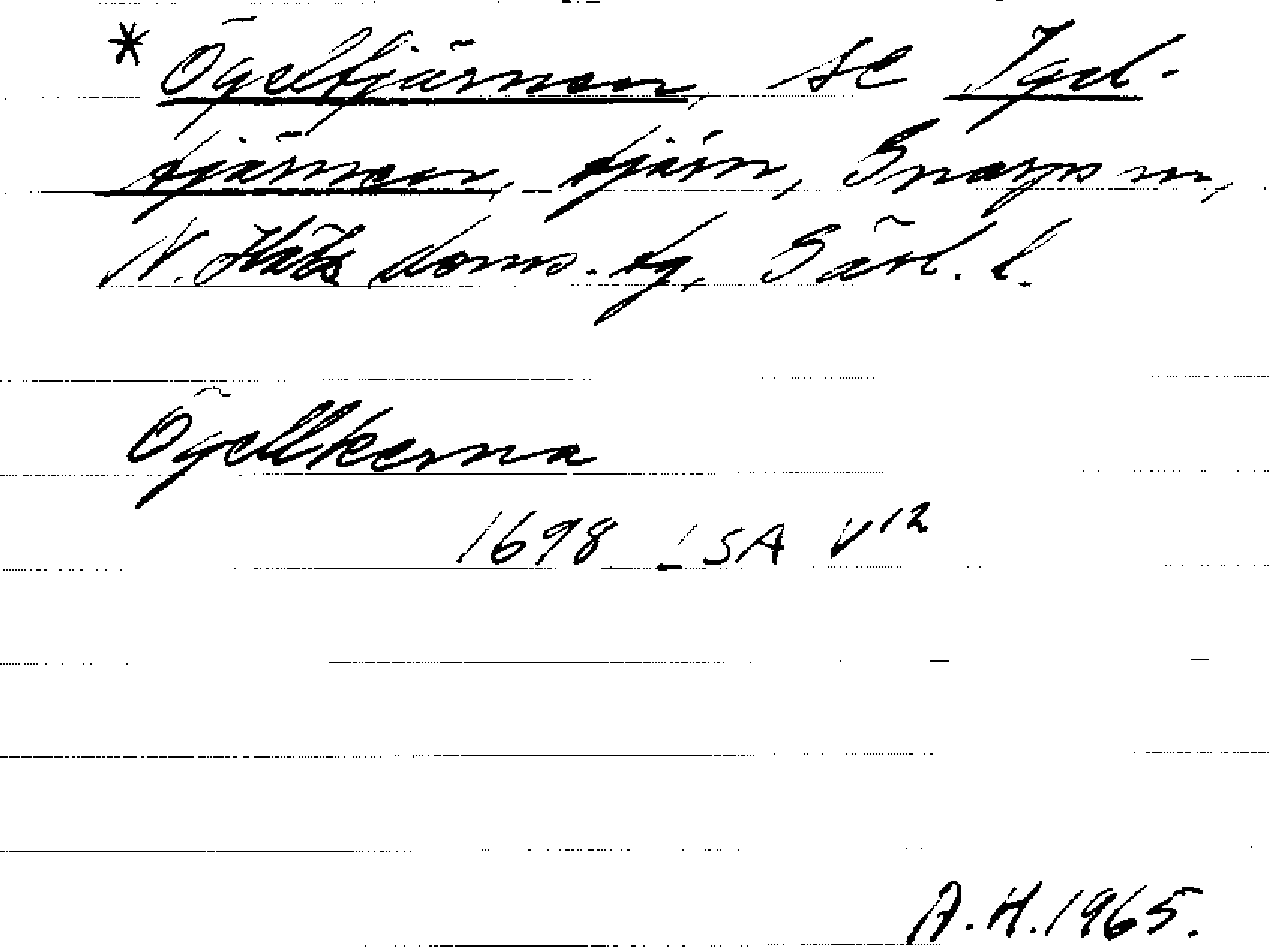 * Ögeltjärnen, se Igel-
tjärnen, tjärn, Gnarps sn,
N. Häls doms. tg, Gävl. l.
Ögellkerna
1698 LSA V12
A.H. 1965.